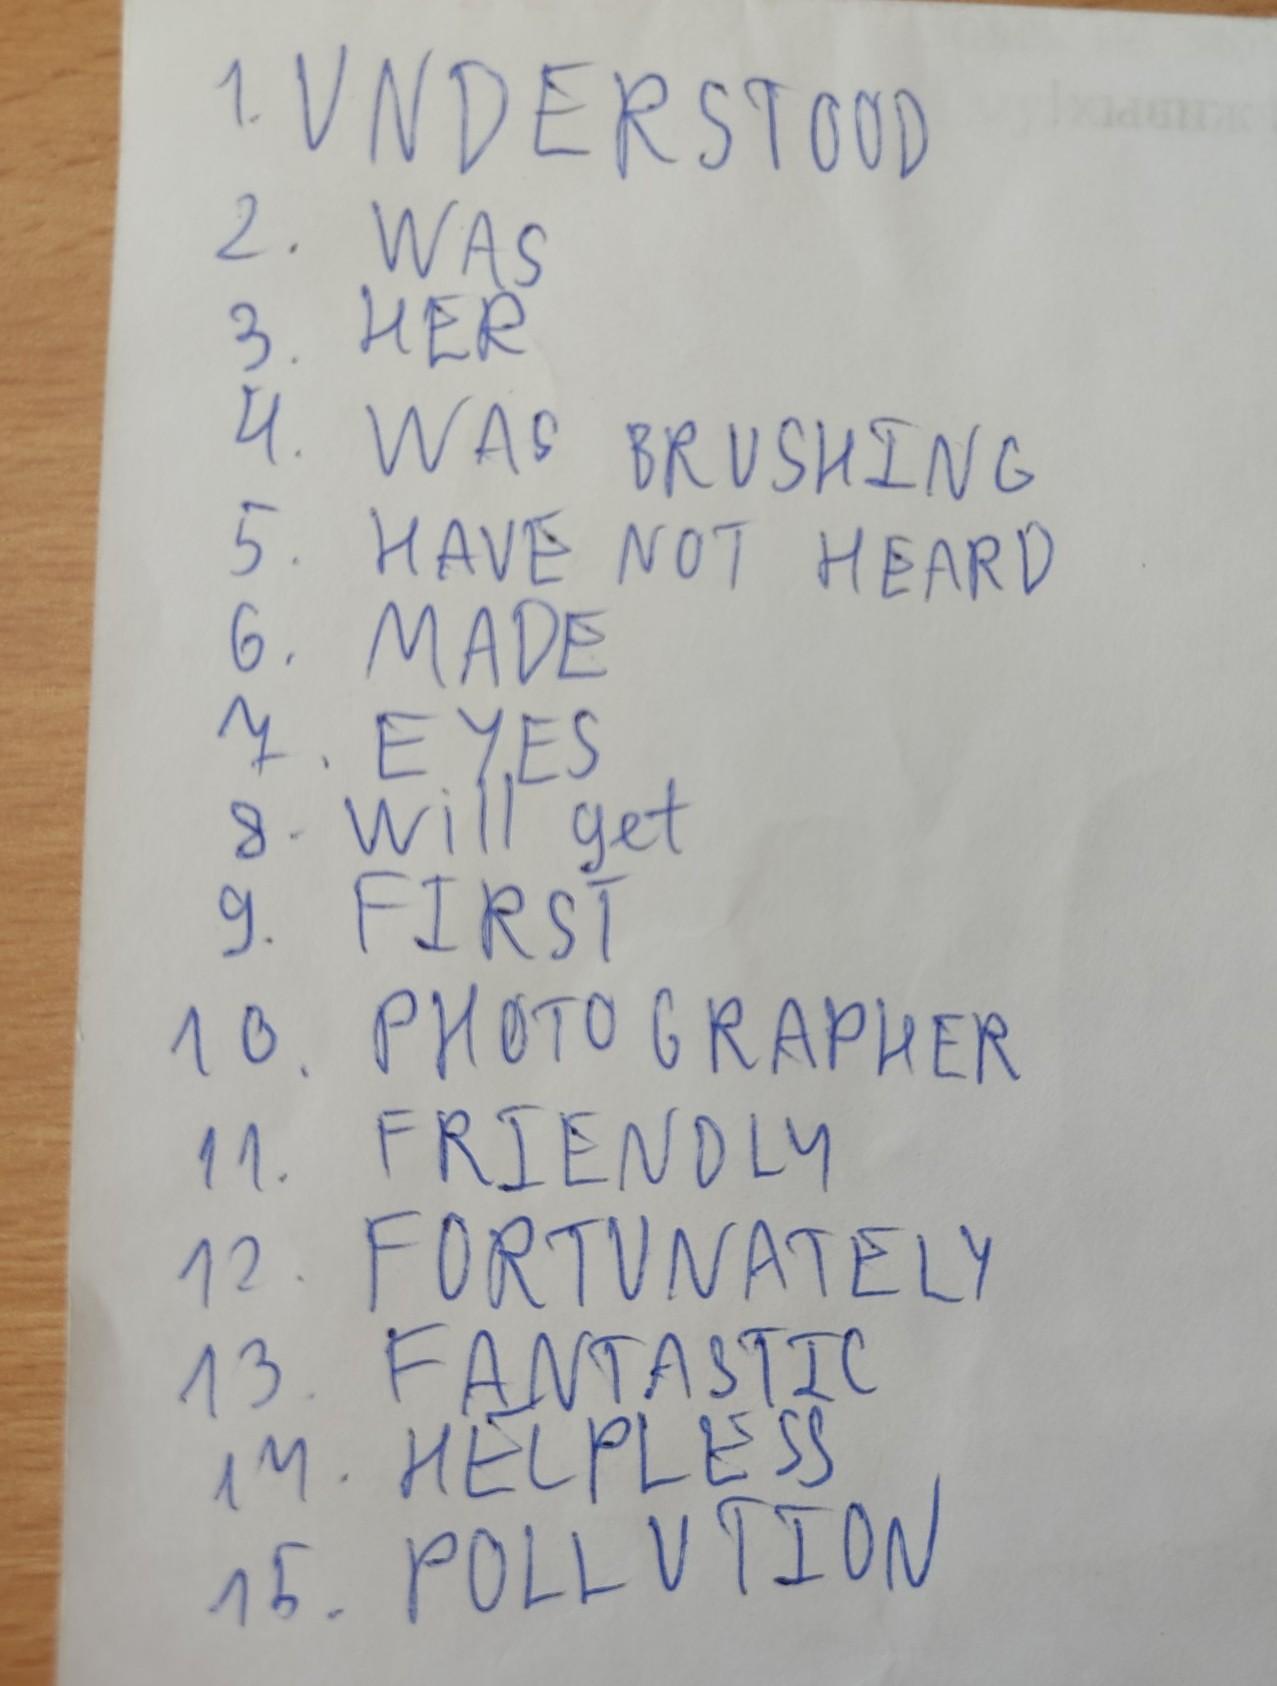 1. UNDERSTOOD
2. WAS
3. HER
4. WAS BRUSHING
5. HAVE NOT HEARD
6. MADE
7. EYES
8. Will get
9. FIRST
10. PHOTOGRAPHER
11. FRIENDLY
12. FORTUNATELY
13. FANTASTIC
14. HELPLESS
15. POLLUTION